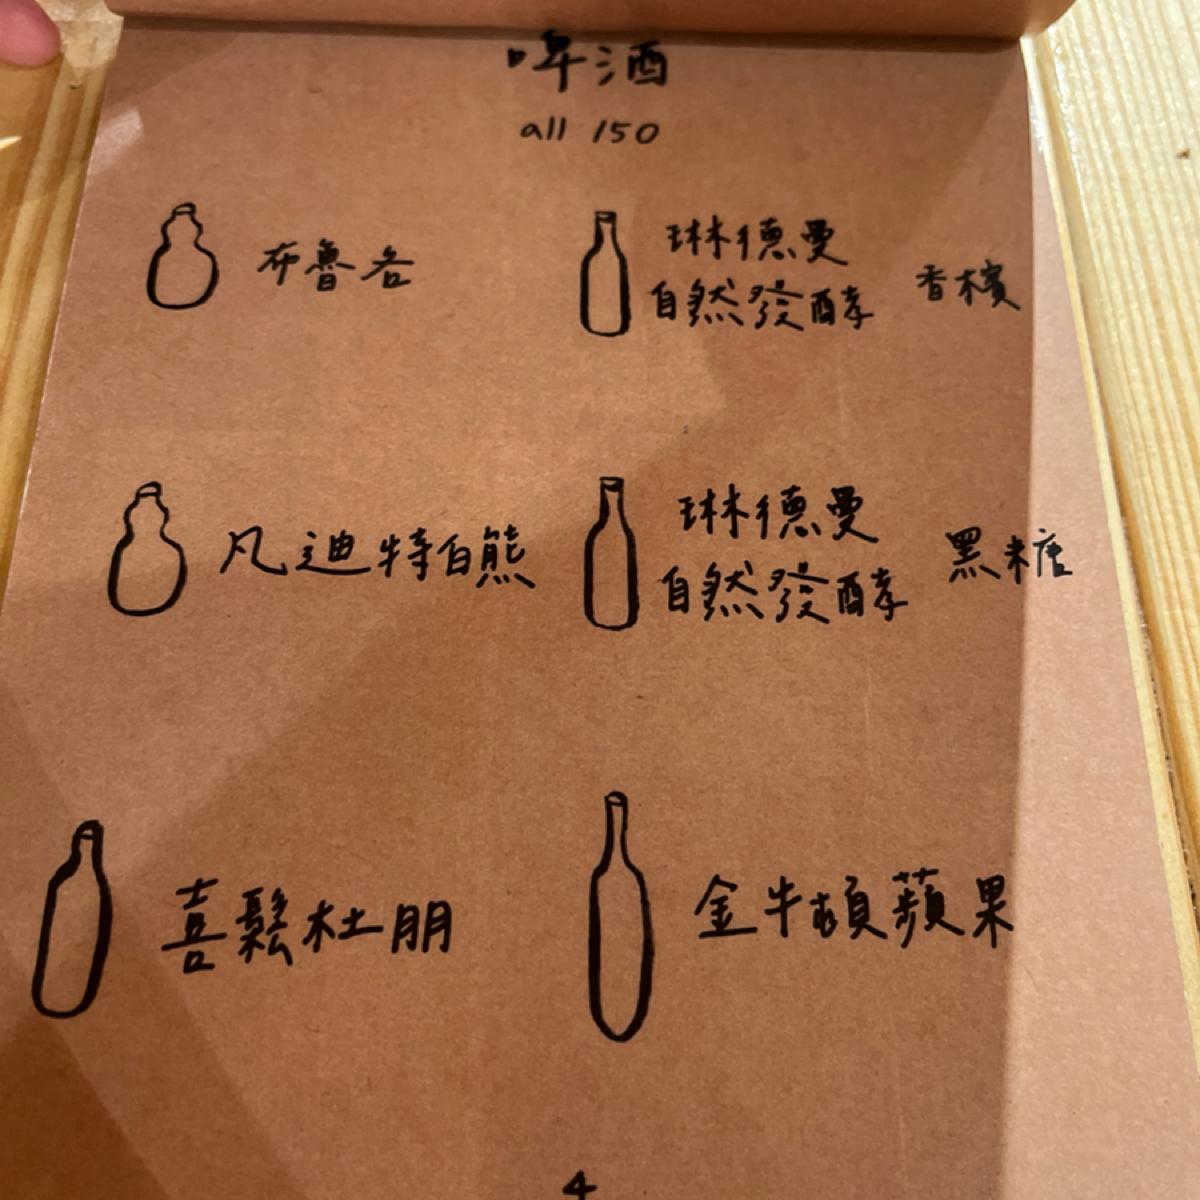 啤酒
all 150
布魯各
琳德曼
自然發酵 香檳
凡迪特白熊
琳德曼
自然發酵 黑糖
喜鬆杜朋
金牛頓蘋果
4